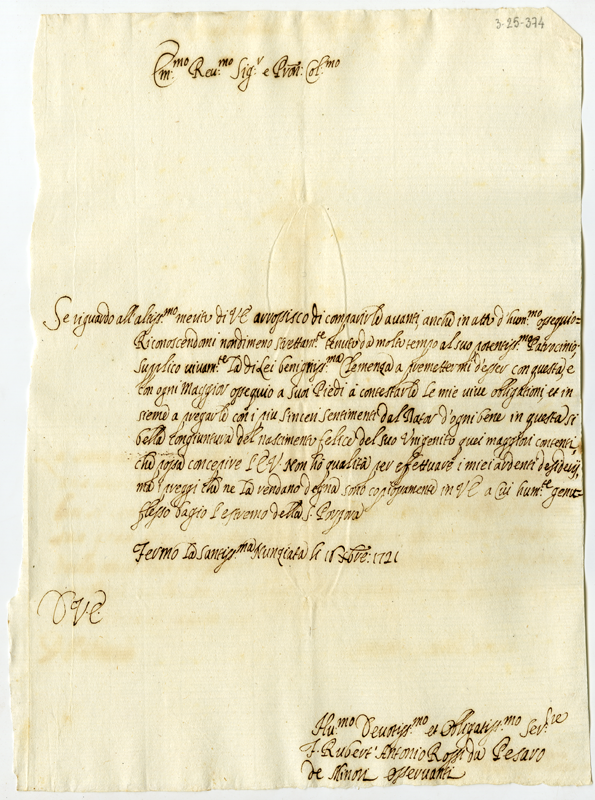 3-25-374
Em:mo Reu:mo Sig:r e Pron: Col:mo
Se riguardo all'altiss:mo merito di VE arrossisco di comparirLe auanti, anche in atto d'hum:mo ossequio=
Riconoscendomi nondimeno strettam:te tenuto da molto tempo al suo potentiss:mo Patrocinio,
supplico viuam:te La di Lei benigniss:ma Clemenza a permettermi d'esser con questa e
con ogni Maggior ossequio a Suoi Piedi a contestarLe le mie viue obligationi, et in
sieme a pregarLe con i piu sinceri sentimenti dal Dator d'ogni bene in questa si
bella congiuntura del nascimento felice del suo Unigenito quei maggiori contenti,
che possa concepire L'E.V. Non ho qualità per effettuare i miei ardenti desiderij,
ma i preggi che ne La rendano degna sono copiosamente in VE a Cui hum:te genu=
flesso bagio l'estremo della S: Porpora
Fermo La Santiss:ma Nunziata li 1721
D V.E.
Hu:mo Deuotiss:mo et Obligatiss:mo Ser:re
F. Rubert' Antonio Rossi da Pesaro
de Minori osseruanti